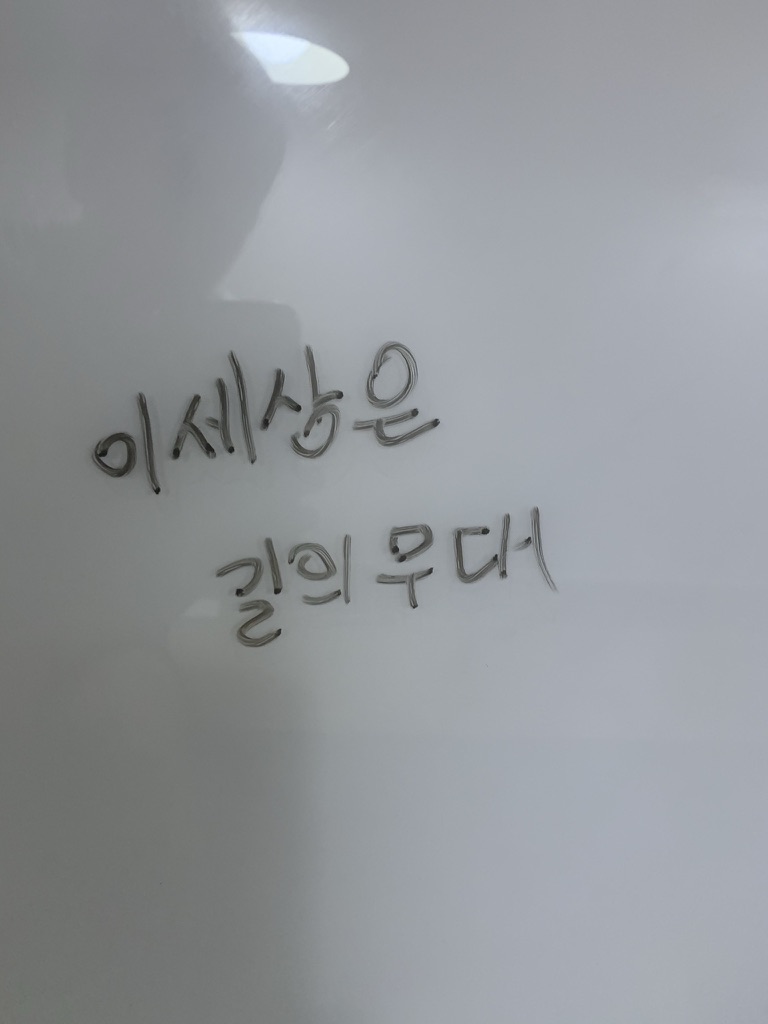 이세상은
길의 무대